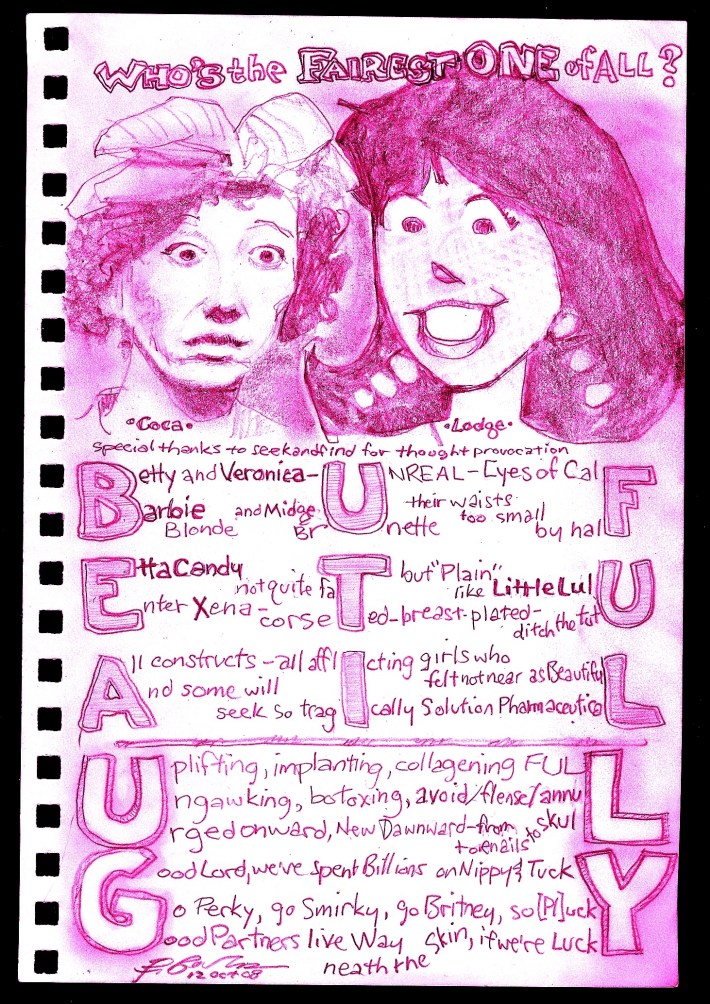 WHO'S the FAIREST ONE of ALL?
•Coca• •Lodge•
special thanks to seekandfind for thought provocation
Betty and Veronica- UNREAL-Eyes of CalF
Barbie and Midge their waists too small by halF
Blonde BrUnette
Etta Candy not quite faT but "Plain" like Little LulU
Enter Xena-corseTed-breast-plated-ditch the tutU
All constructs-all afflIcting girls who felt not near as BeautifuL
And some will seek so tragIcally Solution PharmaceuticaL
Uplifting, implanting, collagening FULL
Ungawking, botoxing, avoid/flense/annuL
Urged onward, New Dawnward-from toenails to skulL
Good Lord, we've spent Billions on Nippy & TuckY
Go Perky, go Smirky, go Britney, so [Pl]uckY
Good Partners live Way neath the Skin, if we're LuckY
12 OCT 08